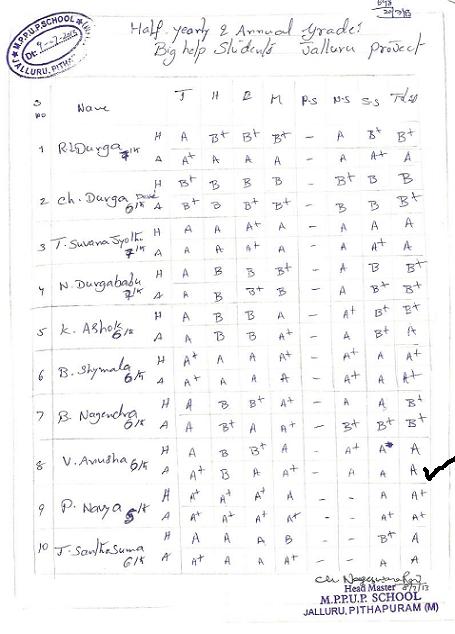 M.P.P.U.P. SCHOOL
JALLURU, PITHAPURAM
Half yearly & Annual Grades
Big help Students Jalluru project
S NO Name T H E M P.S N.S S.S Total
1 R.L.Durga 7th H A B+ B+ B+ - A B+ B+
A A+ A A A - A A+ A
2 Ch. Durga Devi 6th H B+ B B B - B+ B B
A B+ B B+ B+ - B B B+
3 T. Suvana Jyothi 7th H A A A+ A - A A A
A A A A+ A - A A+ A
4 N. Durgababu 7th H A B B B+ - A B B+
A A B B+ B - A B+ B+
5 K. Ashok 6th H A B B A - A+ B+ B+
A A B B A+ - A B+ A
6 B. Shymala 6th H A+ A A A+ - A+ A A+
A A+ A A A - A+ A A+
7 B. Nagendra 6th H A B B+ A+ - A A B+
A A B+ A A+ - B+ B+ B+
8 V. Anusha 6th H A B B+ A - A+ A+ A
A A+ B A A+ - A A A
9 P. Navya 5th H A+ A+ A+ A - - A A+
A A+ A+ A+ A+ - - A A+
10 J. Santhasuma 6th H A A A B - - B+ A
A A+ A A A+ - - A A
Head Master 8/7/13
M.P.P.U.P. SCHOOL
JALLURU, PITHAPURAM (M)